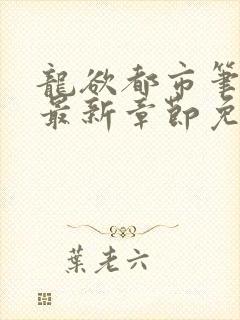 龍欲都市筆
最新章節免
葉老六